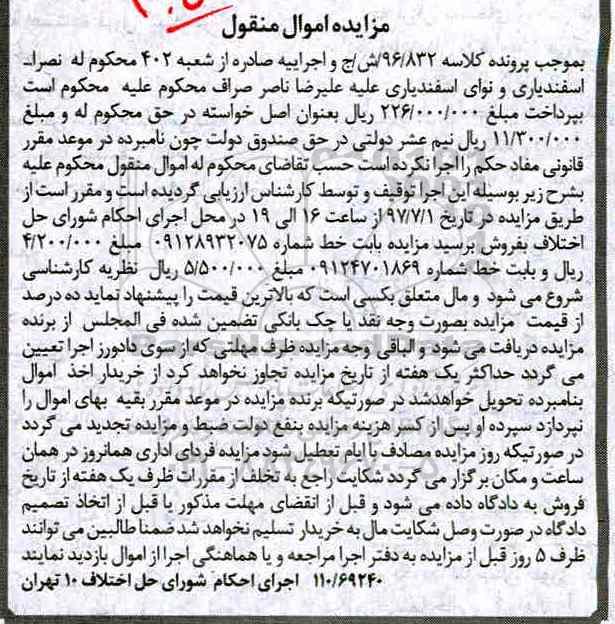 مزایده اموال منقول
بموجب پرونده کلاسه ۹۶/۸۳۲/ش/ج و اجراییه صادره از شعبه ۴۰۲ محکوم له نصرالـ
اسفندیاری و نوای اسفندیاری علیه علیرضا ناصر صراف محکوم علیه محکوم است
بپرداخت مبلغ ۲۲۶/۰۰۰/۰۰۰ ریال بعنوان اصل خواسته در حق محکوم له و مبلغ
۱۱/۳۰۰/۰۰۰ ریال نیم عشر دولتی در حق صندوق دولت چون نامبرده در موعد مقرر
قانونی مفاد حکم را اجرا نکرده است حسب تقاضای محکوم له اموال منقول محکوم علیه
بشرح زیر بوسیله این اجرا توقیف و توسط کارشناس ارزیابی گردیده است و مقرر است از
طریق مزایده در تاریخ ۹۷/۷/۱ از ساعت ۱۶ الی ۱۹ در محل اجرای احکام شورای حل
اختلاف بفروش برسید مزایده بابت خط شماره ۰۹۱۲۸۹۳۲۰۷۵ مبلغ ۴/۲۰۰/۰۰۰
ریال و بابت خط شماره ۰۹۱۲۴۷۰۱۸۶۹ مبلغ ۵/۵۰۰/۰۰۰ ریال نظریه کارشناسی
شروع می شود و مال متعلق بکسی است که بالاترین قیمت را پیشنهاد نماید ده درصد
از قیمت مزایده بصورت وجه نقد یا چک بانکی تضمین شده فی المجلس از برنده
مزایده دریافت می شود و الباقی وجه مزایده ظرف مهلتی که از سوی دادورز اجرا تعیین
می گردد حداکثر یک هفته از تاریخ مزایده تجاوز نخواهد کرد از خریدار اخذ اموال
بنامبرده تحویل خواهدشد در صورتیکه برنده مزایده در موعد مقرر بقیه بهای اموال را
نپردازد سپرده او پس از کسر هزینه مزایده بنفع دولت ضبط و مزایده تجدید می گردد
در صورتیکه روز مزایده مصادف با ایام تعطیل شود مزایده فردای اداری همانروز در همان
ساعت و مکان برگزار می گردد شکایت راجع به تخلف از مقررات ظرف یک هفته از تاریخ
فروش به دادگاه داده می شود و قبل از انقضای مهلت مذکور یا قبل از اتخاذ تصمیم
دادگاه در صورت وصل شکایت مال به خریدار تسلیم نخواهد شد ضمنا طالبین می توانند
ظرف ۵ روز قبل از مزایده به دفتر اجرا مراجعه و یا هماهنگی اجرا از اموال بازدید نمایند
۱۱۰/۶۹۲۴۰ اجرای احکام شورای حل اختلاف ۱۰ تهران